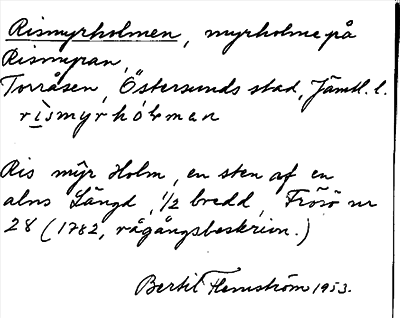 Rismyrholmen, myrholme på
Rismyran,
Torråsen, Östersunds stad, Jämtl. l.
rismyrhólman
Ris myr Holm, en sten af en
alns Längd, 1/2 bredd, Frösö nr
28 (1782, rågångsbeskrivn.)
Bertil Flemström 1953.